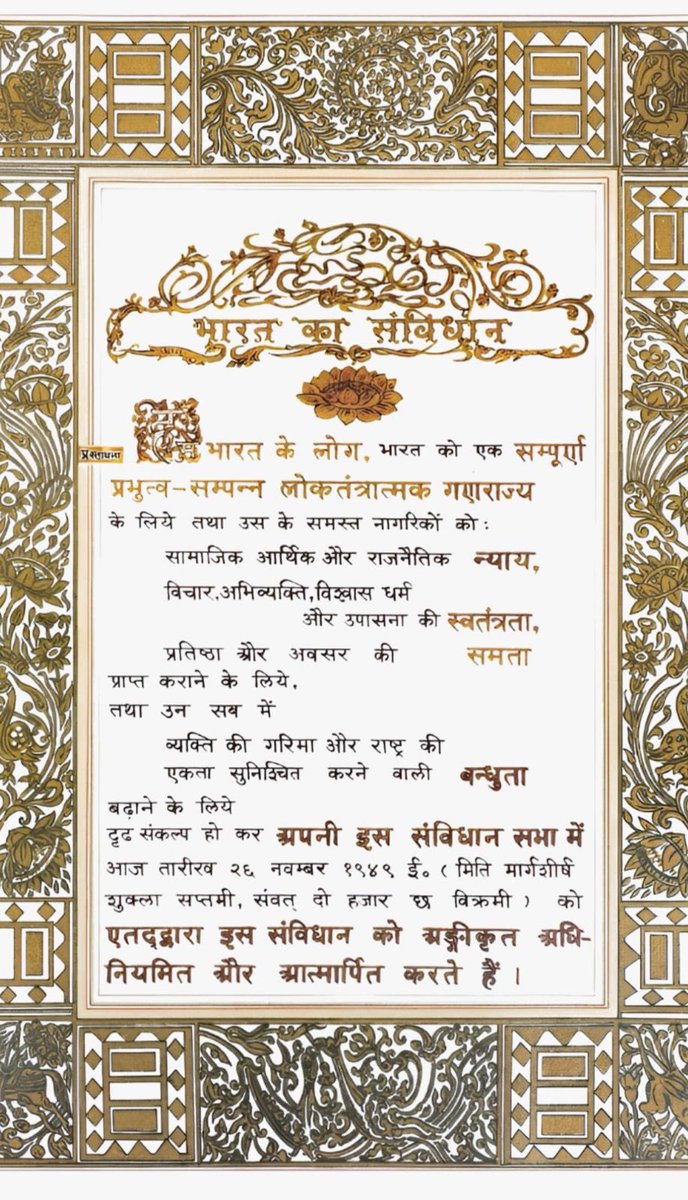 भारत का संविधान
प्रस्तावना
हम भारत के लोग, भारत को एक सम्पूर्ण
प्रभुत्व-सम्पन्न लोकतंत्रात्मक गणराज्य
के लिये तथा उस के समस्त नागरिकों को:
सामाजिक आर्थिक और राजनैतिक न्याय,
विचार,अभिव्यक्ति,विश्वास धर्म
और उपासना की स्वतंत्रता,
प्रतिष्ठा और अवसर की समता
प्राप्त कराने के लिये,
तथा उन सब में
व्यक्ति की गरिमा और राष्ट्र की
एकता सुनिश्चित करने वाली बन्धुता
बढ़ाने के लिये
दृढ संकल्प हो कर अपनी इस संविधान सभा में
आज तारीख २६ नवम्बर १९४९ ई॰ (मिति मार्गशीर्ष
शुक्ला सप्तमी, संवत् दो हजार छ विक्रमी) को
एतद्द्वारा इस संविधान को अङ्गीकृत अधि-
नियमित और आत्मार्पित करते हैं ।